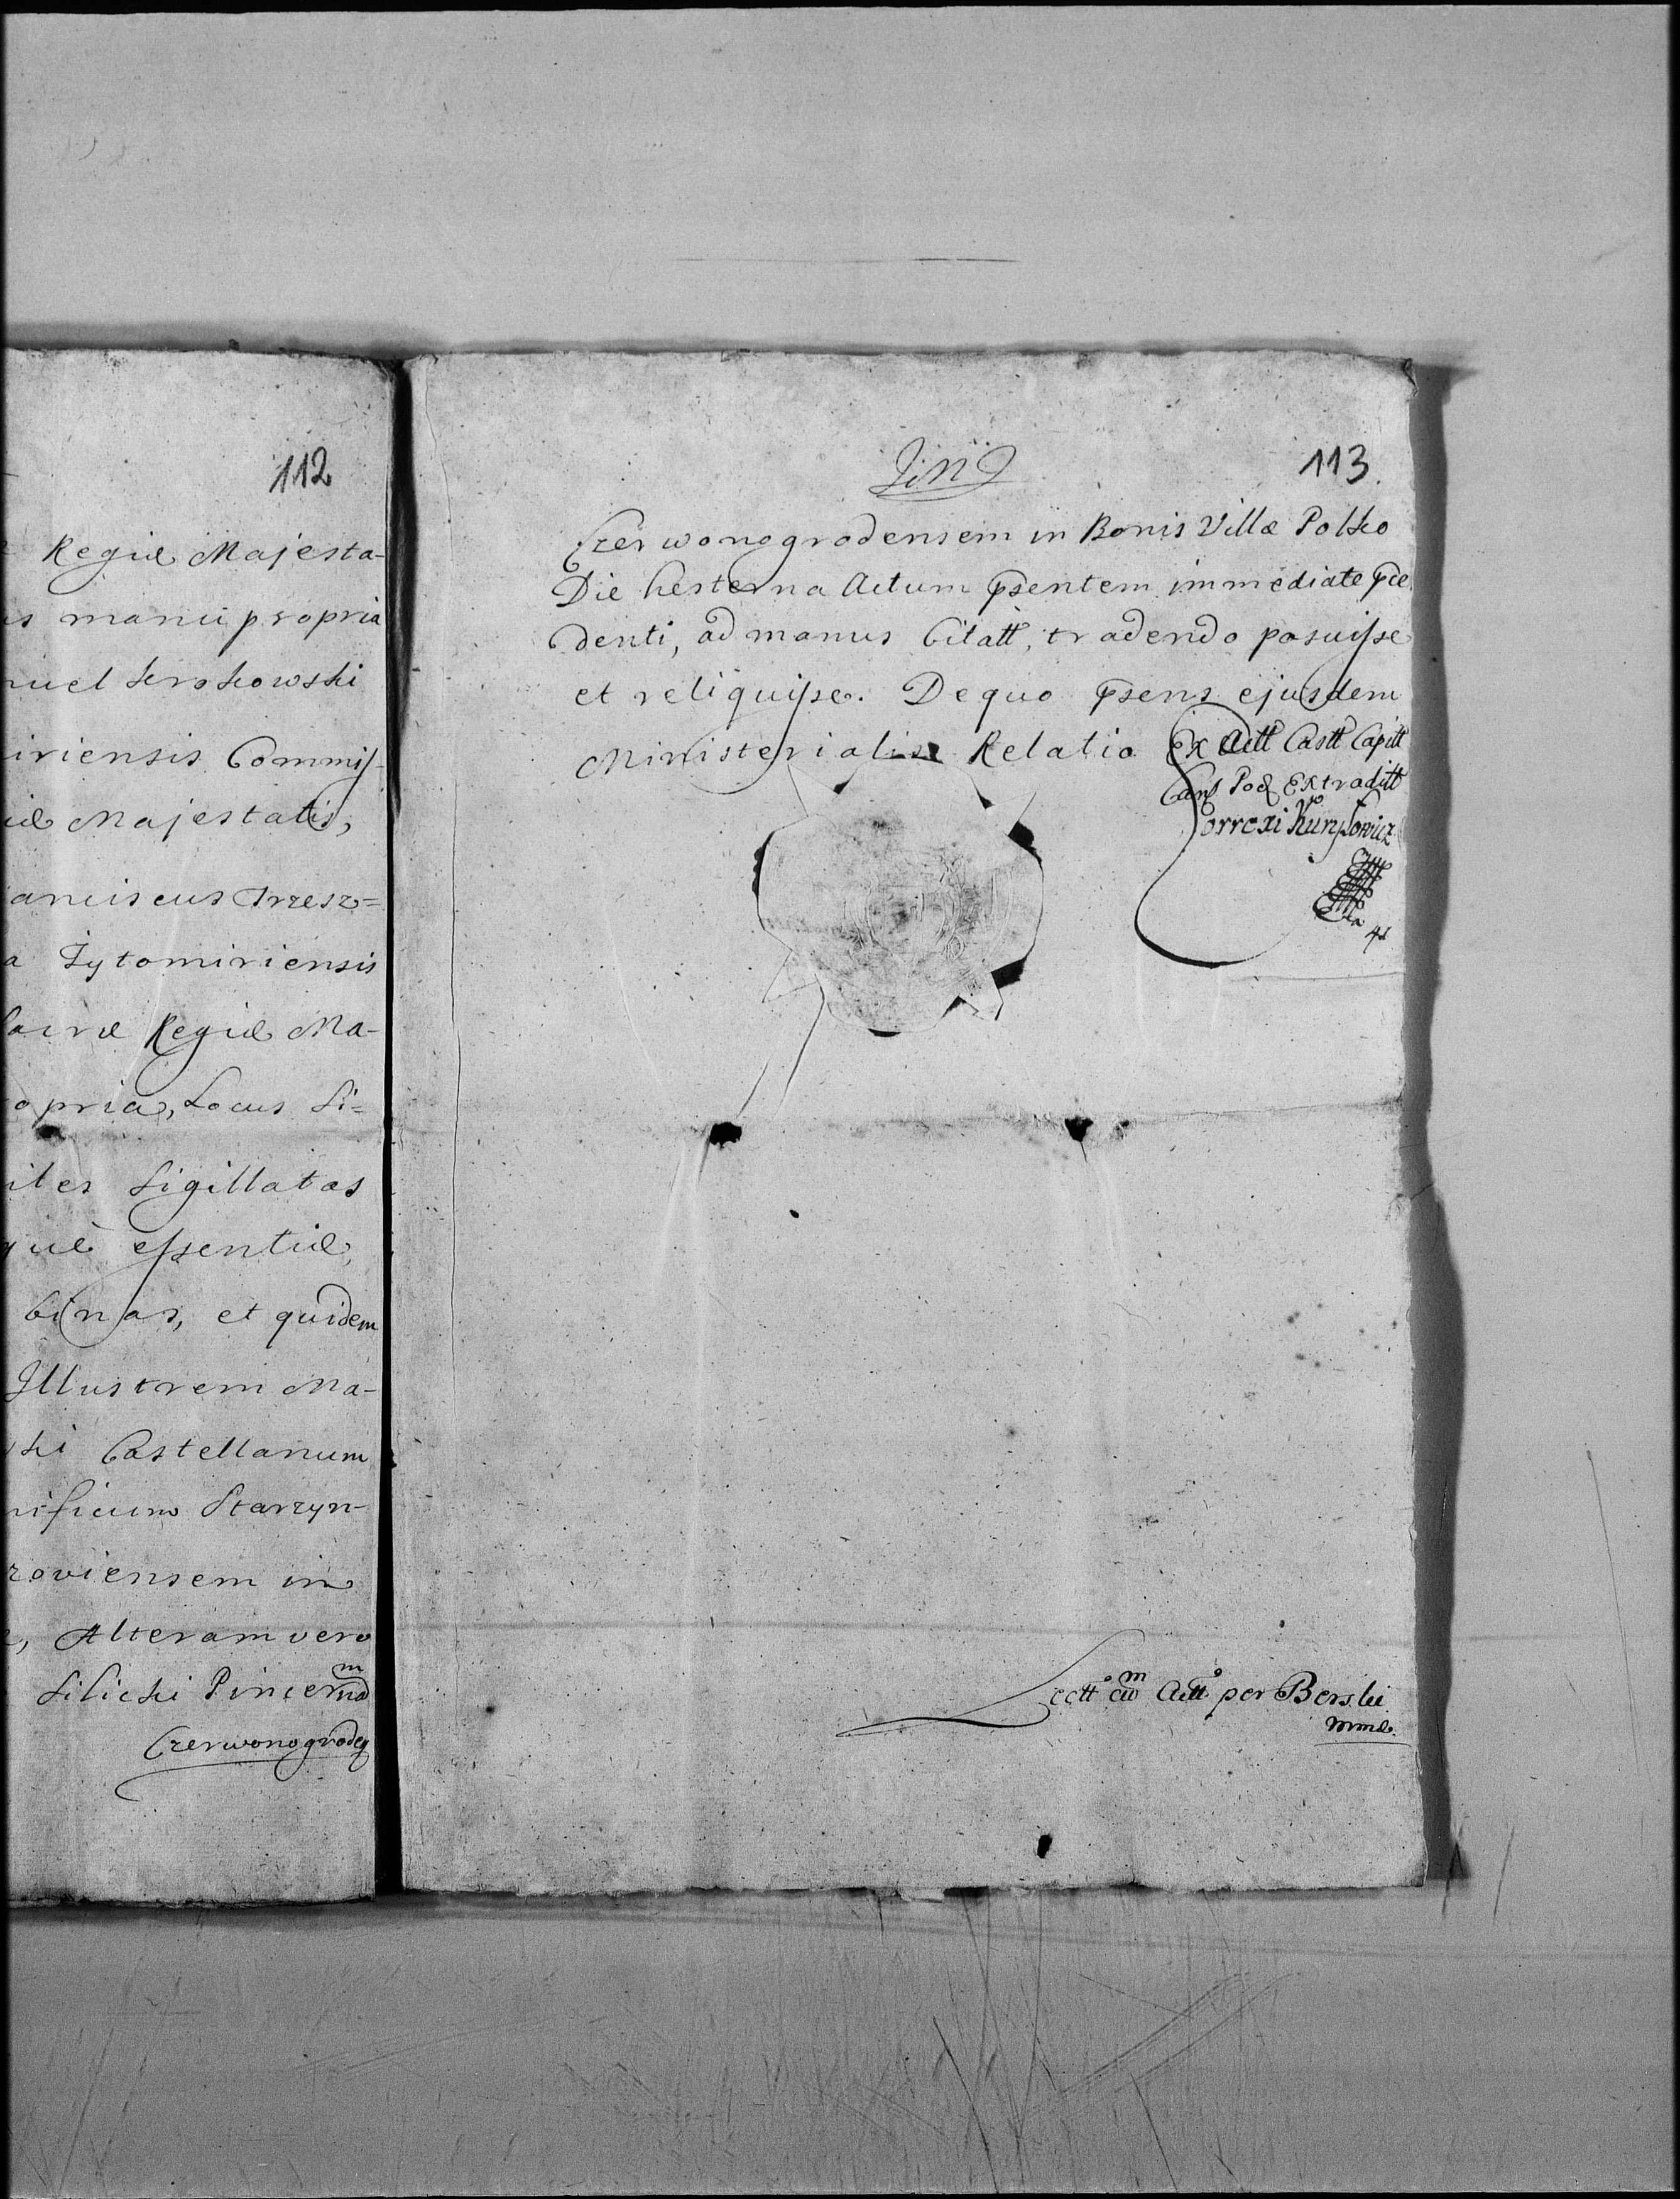 112
Regiæ Majesta-
s manu propria
uel Krokowski
iriensis Commis-
iæ Majestatis,
anciscus Trzesz=
a Zytomiriensis
Sacræ Regiæ Ma-
opria, Locus Si=
iles Sigillatas
què essentiæ,
binas, et quidem
Illustrem Ma-
ski Castellanum
nificum Starzyn-
roviensem in
, Alteram vero
Silicki Pincernam
Czerwonogrodẽ
113.
Czerwonogrodensem in Bonis Villæ Polko
Die hesterna Actum p̃sentem immediate p̃ce
denti, ad manus Citatt, tradendo posuisse
et reliquisse. De quo p̃sens ejusdem
Ministerialis Relatio Ex Actt Castt Capitt
Cam̃ Pod Extraditt
Correxi
Lectt cum Actt per Berski
mmp.